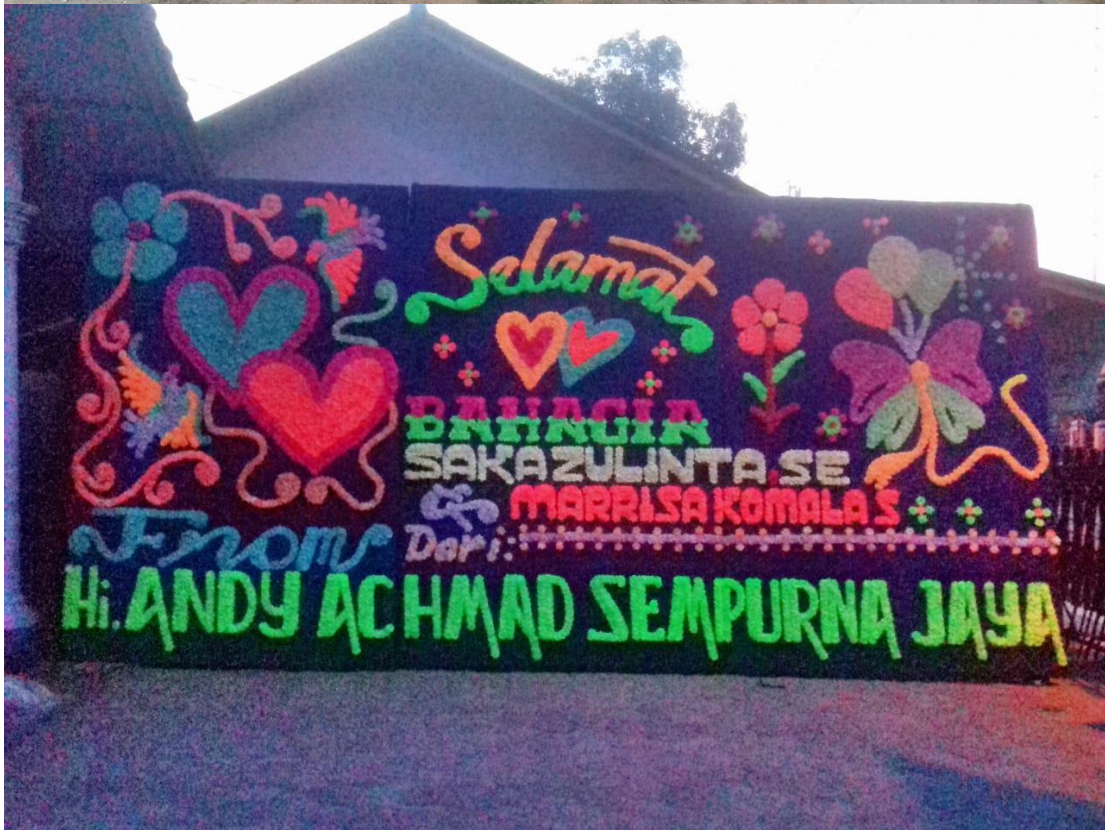 Selamat
BAHAGIA
SAKAZULINTA.SE
& MARRISA KOMALA S
From Dari:
Hi. ANDY ACHMAD SEMPURNA JAYA